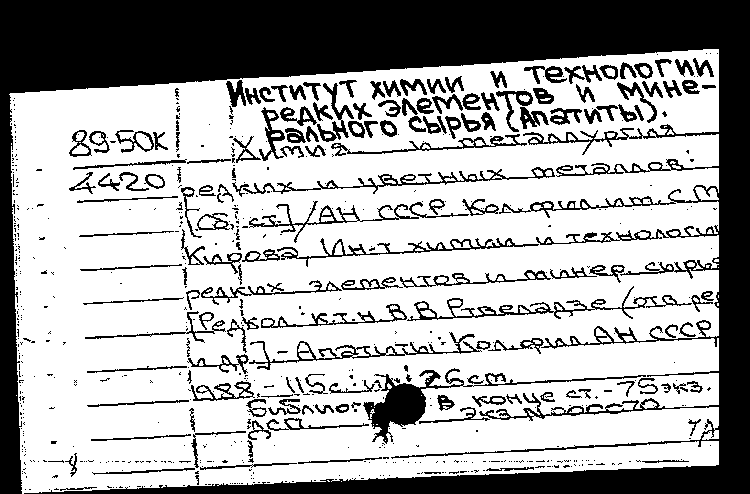 Институт химии и технологии
редких элементов и мине-
рального сырья (Апатиты).
89-50К Химия и металлургия
4420 редких и цветных металлов:
[Сб. ст.] / АН СССР. Кол. фил. им. С.М
Кирова, Ин-т химии и технологии
редких элементов и минер. сырья
[Редкол.: к.т.н. В.В. Ртвеладзе (отв. ред
и др.] - Апатиты: Кол. фил. АН СССР,
1988. - 115 с.: ил.; 26 см.
Библиогр. в конце ст. - 75 экз.
ДСП. Экз. N 000070.